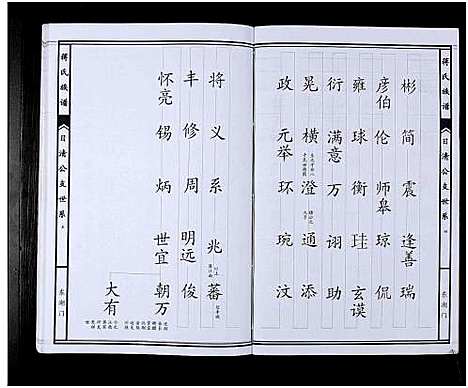 蒋氏族谱
《日清公支世系》
东湖门
彬 简 震 逢善 瑞
彦伯 伦 师皋 琼 侃
雍 球 衡 珪 玄谟
衍 满意 万 诩 助
晃 横 澄 通 添
政 元举 环 琬 汶
将 义 系 兆 蕃
丰 修 周 明远 俊
怀亮 锡 炳 世宜 朝万
大有
蒋氏族谱
《日清公支世系》
东湖门